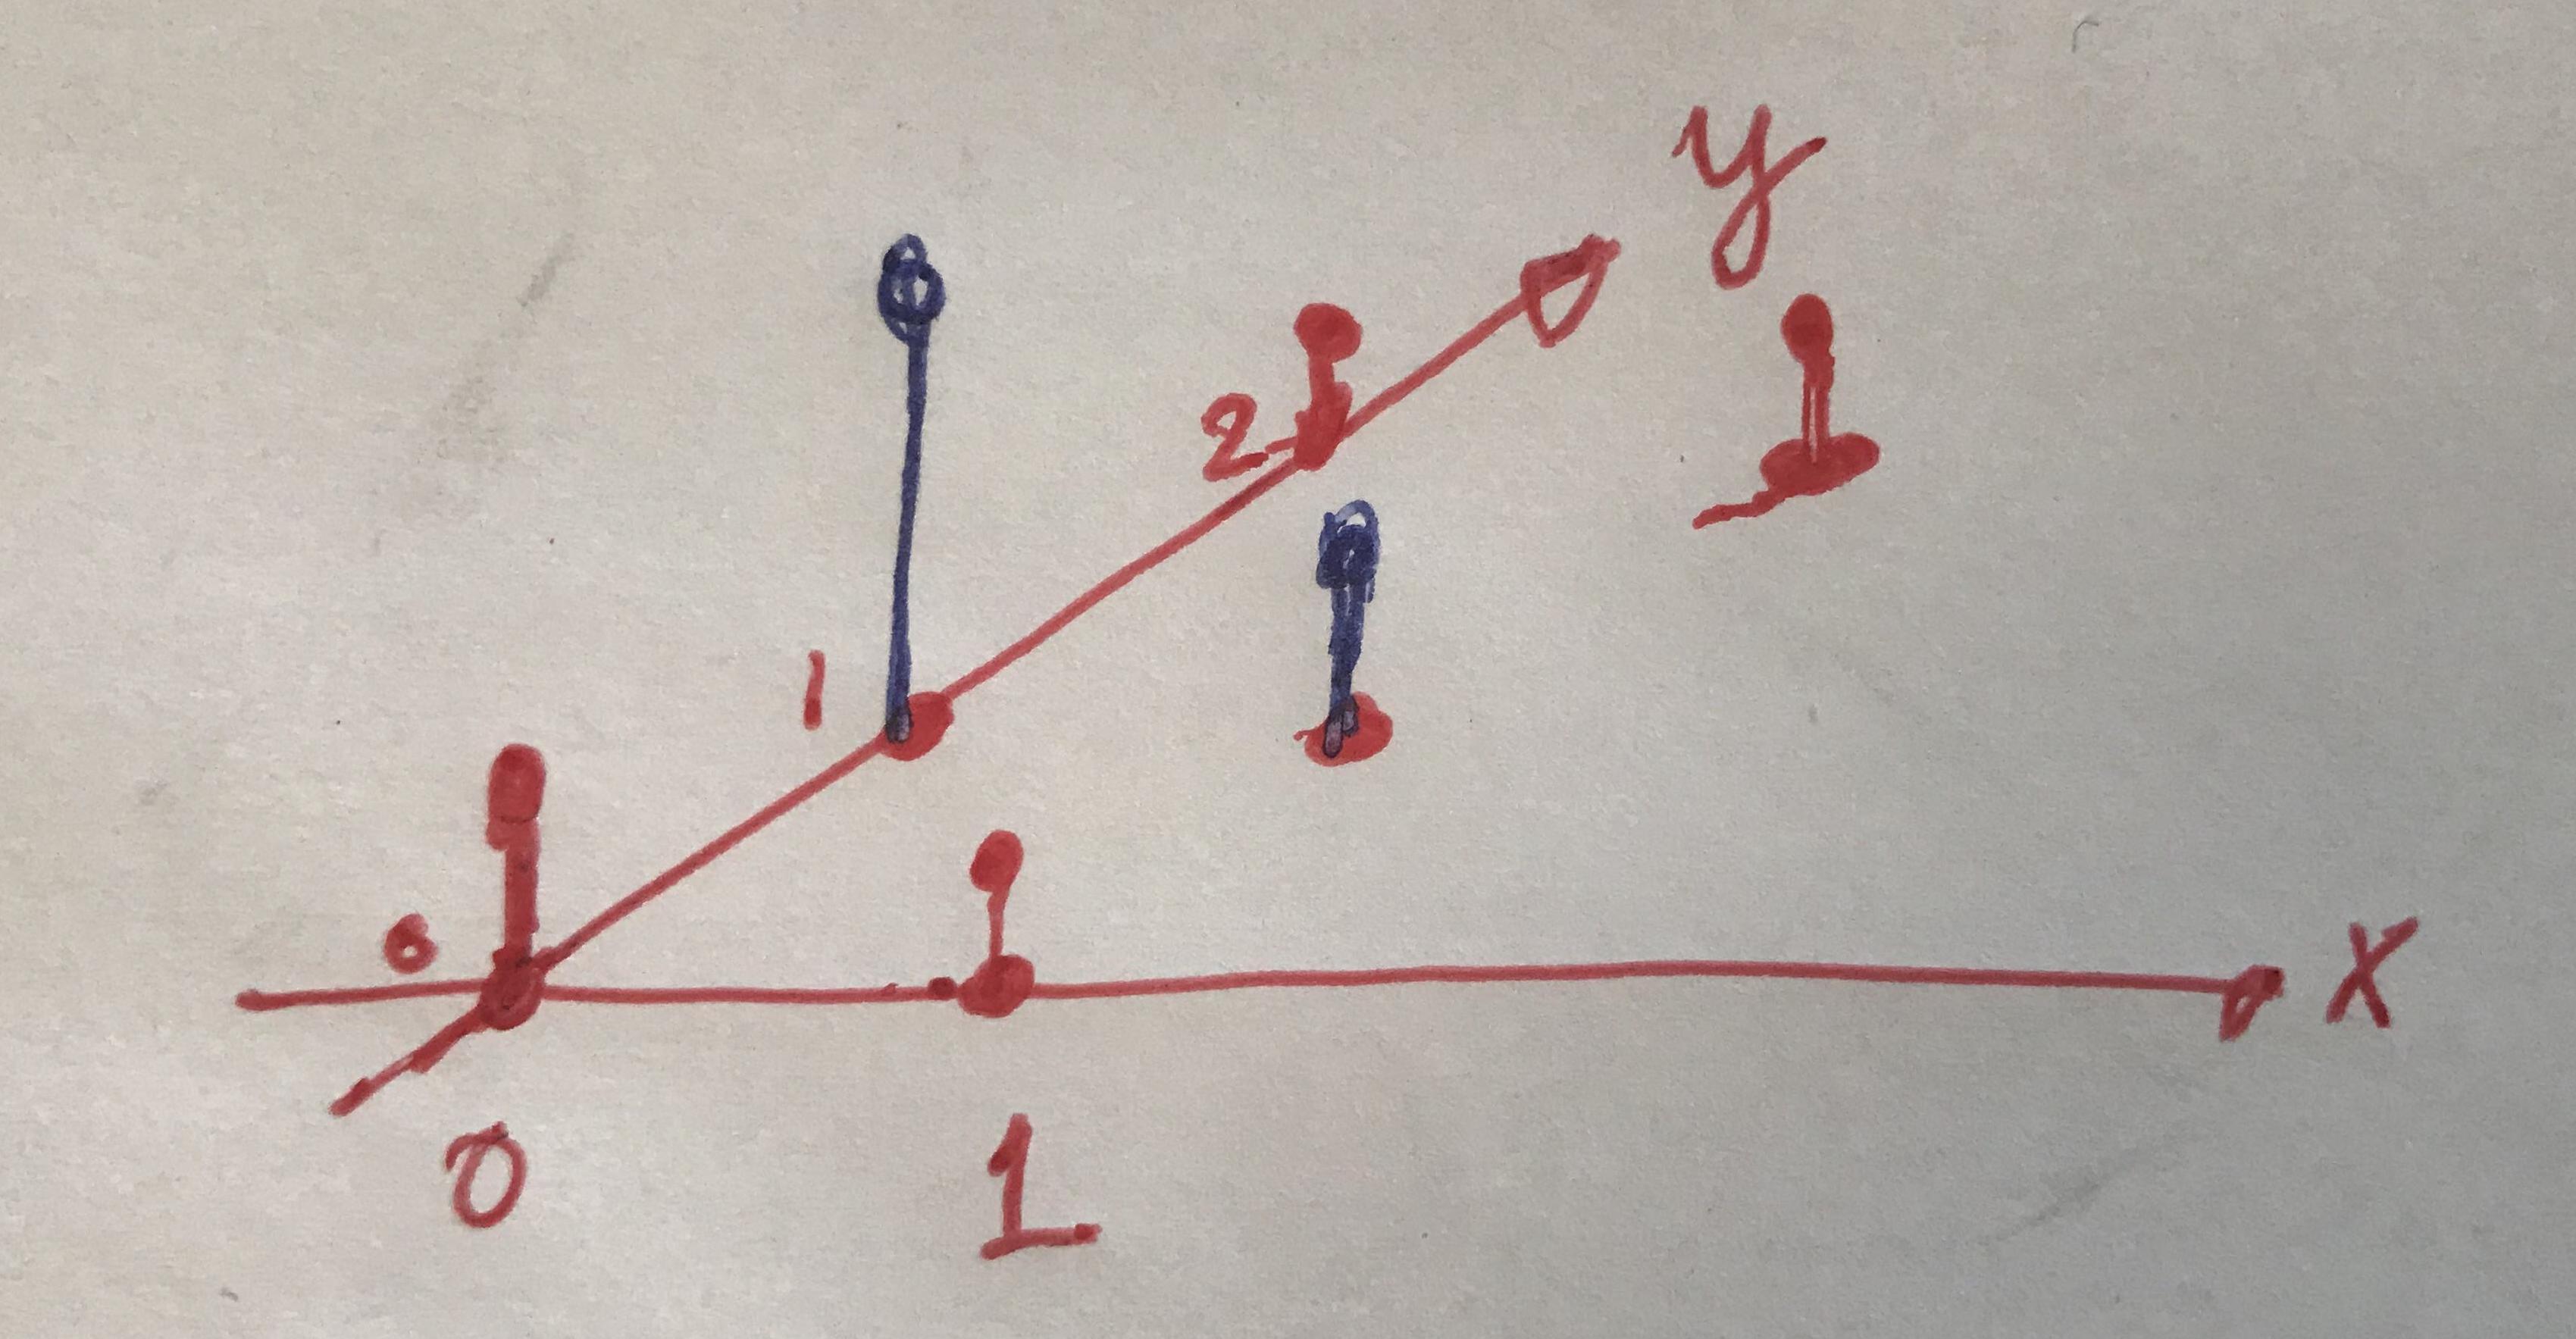 y
2
1
0
X
0
1